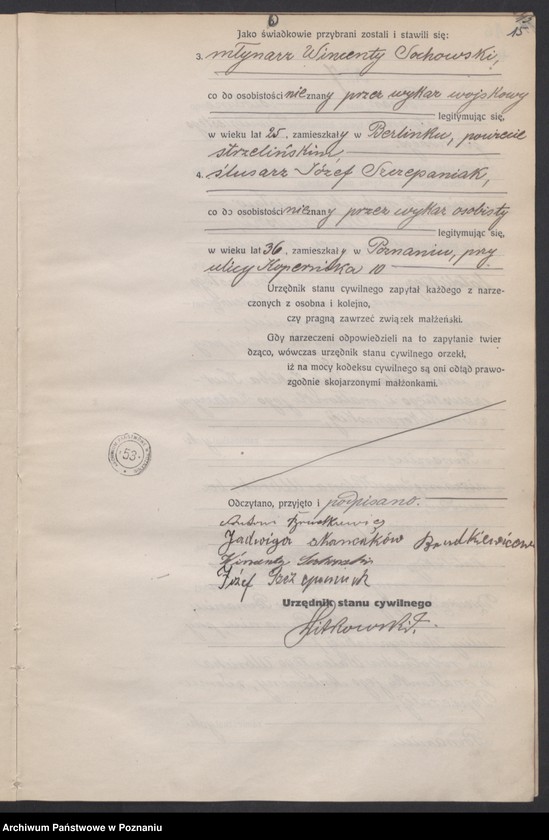 15
Jako świadkowie przybrani zostali i stawili się:
3. młynarz Wincenty Sochowski,
co do osobistości nieznany przez wykaz wojskowy
legitymując się,
w wieku lat 25, zamieszkały w Berlinku, powiecie
strzelińskim
4. ślusarz Józef Szczepaniak,
co do osobistości nieznany przez wykaz osobisty
legitymując się,
w wieku lat 36, zamieszkały w Poznaniu, przy
ulicy Kopernika 10
Urzędnik stanu cywilnego zapytał każdego z narze-
czonych z osobna i kolejno,
czy pragną zawrzeć związek małżeński.
Gdy narzeczeni odpowiedzieli na to zapytanie twier
dząco, wówczas urzędnik stanu cywilnego orzekł,
iż na mocy kodeksu cywilnego są oni odtąd prawo-
zgodnie skojarzonymi małżonkami.
53
Odczytano, przyjęto i podpisano.
Jadwiga
Wincenty Sochowski
Józef Szczepaniak
Urzędnik stanu cywilnego
Witkowski
Archiwum Państwowe w Poznaniu